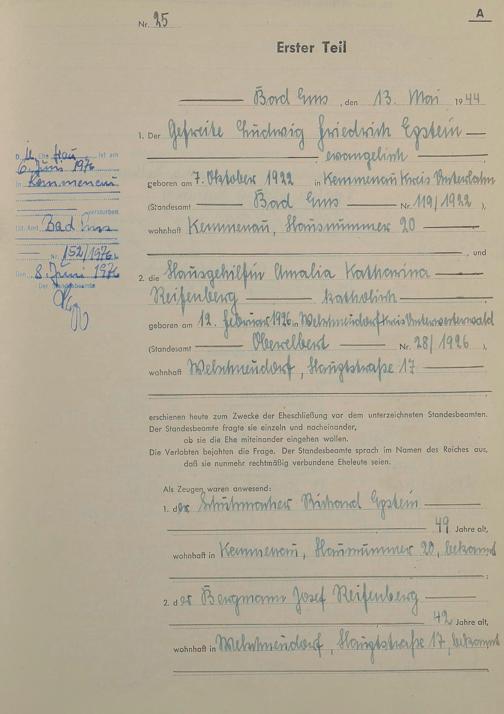 Nr. 25
A
Erster Teil
Bad Ems, den 13. Mai 1944
1. Der Gefreite Ludwig Friedrich Epstein
evangelisch
geboren am 7. Oktober 1922 in Kemmenau Kreis Unterlahn
(Standesamt Bad Ems Nr. 119/1922),
wohnhaft Kemmenau, Hausnummer 20
, und
2. die Hausgehilfin Amalia Katharina
Reifenberg katholisch
geboren am 12. Februar 1926 in Welschneudorf Kreis Unterwesterwald
(Standesamt Oberelbert Nr. 28/1926),
wohnhaft Welschneudorf, Hauptstraße 17
erschienen heute zum Zwecke der Eheschließung vor dem unterzeichneten Standesbeamten.
Der Standesbeamte fragte sie einzeln und nacheinander,
ob sie die Ehe miteinander eingehen wollen.
Die Verlobten bejahten die Frage. Der Standesbeamte sprach im Namen des Reiches aus,
daß sie nunmehr rechtmäßig verbundene Eheleute seien.
Als Zeugen waren anwesend:
1. der Schuhmacher Richard Epstein
49 Jahre alt,
wohnhaft in Kemmenau, Hausnummer 20, bekannt
2. der Bergmann Josef Reifenberg
42 Jahre alt,
wohnhaft in Welschneudorf, Hauptstraße 17, bekannt
D. Ehe ist am
6. Juni 1976
in Kemmenau
verstorben
St. Amt Bad Ems
Nr. 152/1976
Den 8. Juni 1976
Der Standesbeamte